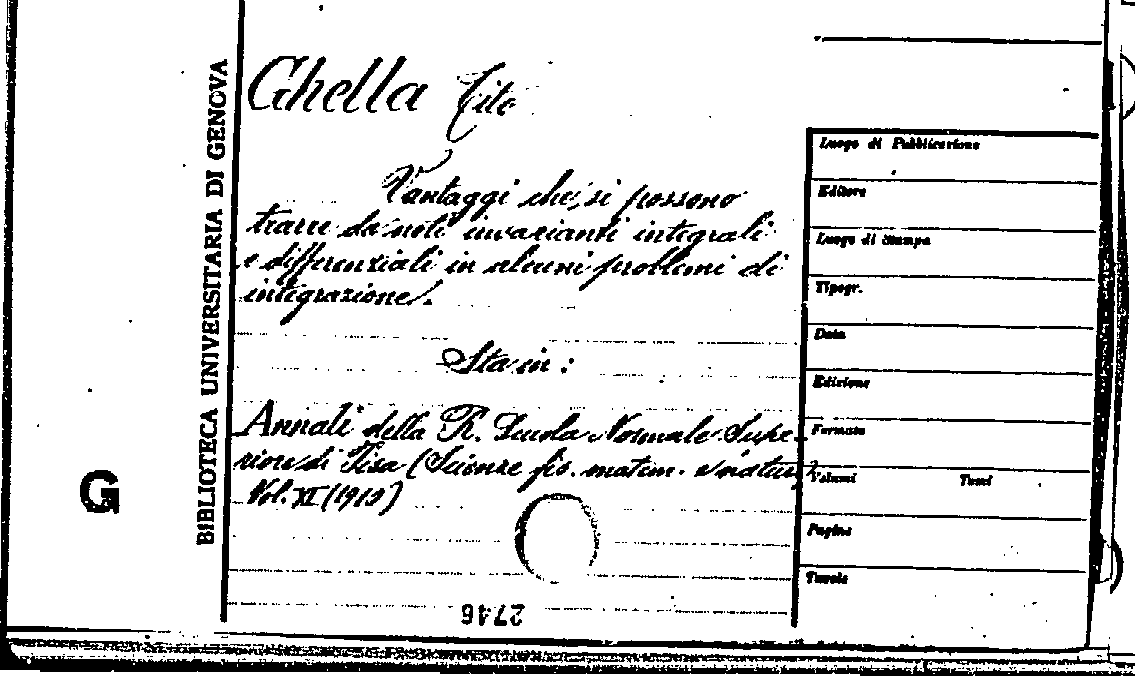 BIBLIOTECA UNIVERSITARIA DI GENOVA
G
Ghella Tito
Vantaggi che si possono
trarre da noti invarianti integrali
e differenziali in alcuni problemi di
integrazione.
Sta in:
Annali della R. Scuola Normale Supe-
riore di Pisa (Scienze fis. matem. e natur.)
Vol. XI (1910)
2746
Luogo di Pubblicazione
Editore
Luogo di Stampa
Tipogr.
Data
Edizione
Formato
Volumi Tomi
Pagine
Tavole